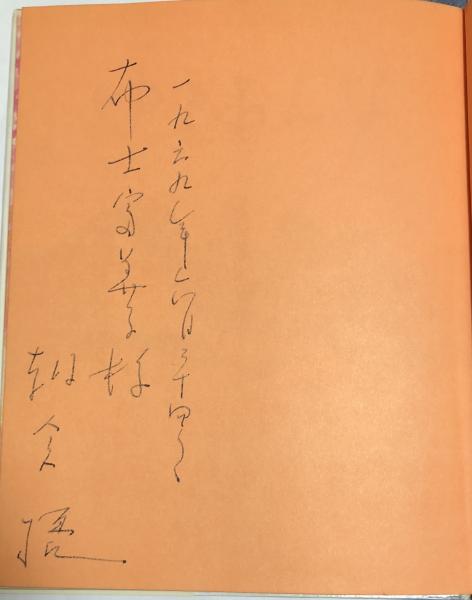 一九六九年六月二十四日
布士富美子様
朝倉摂